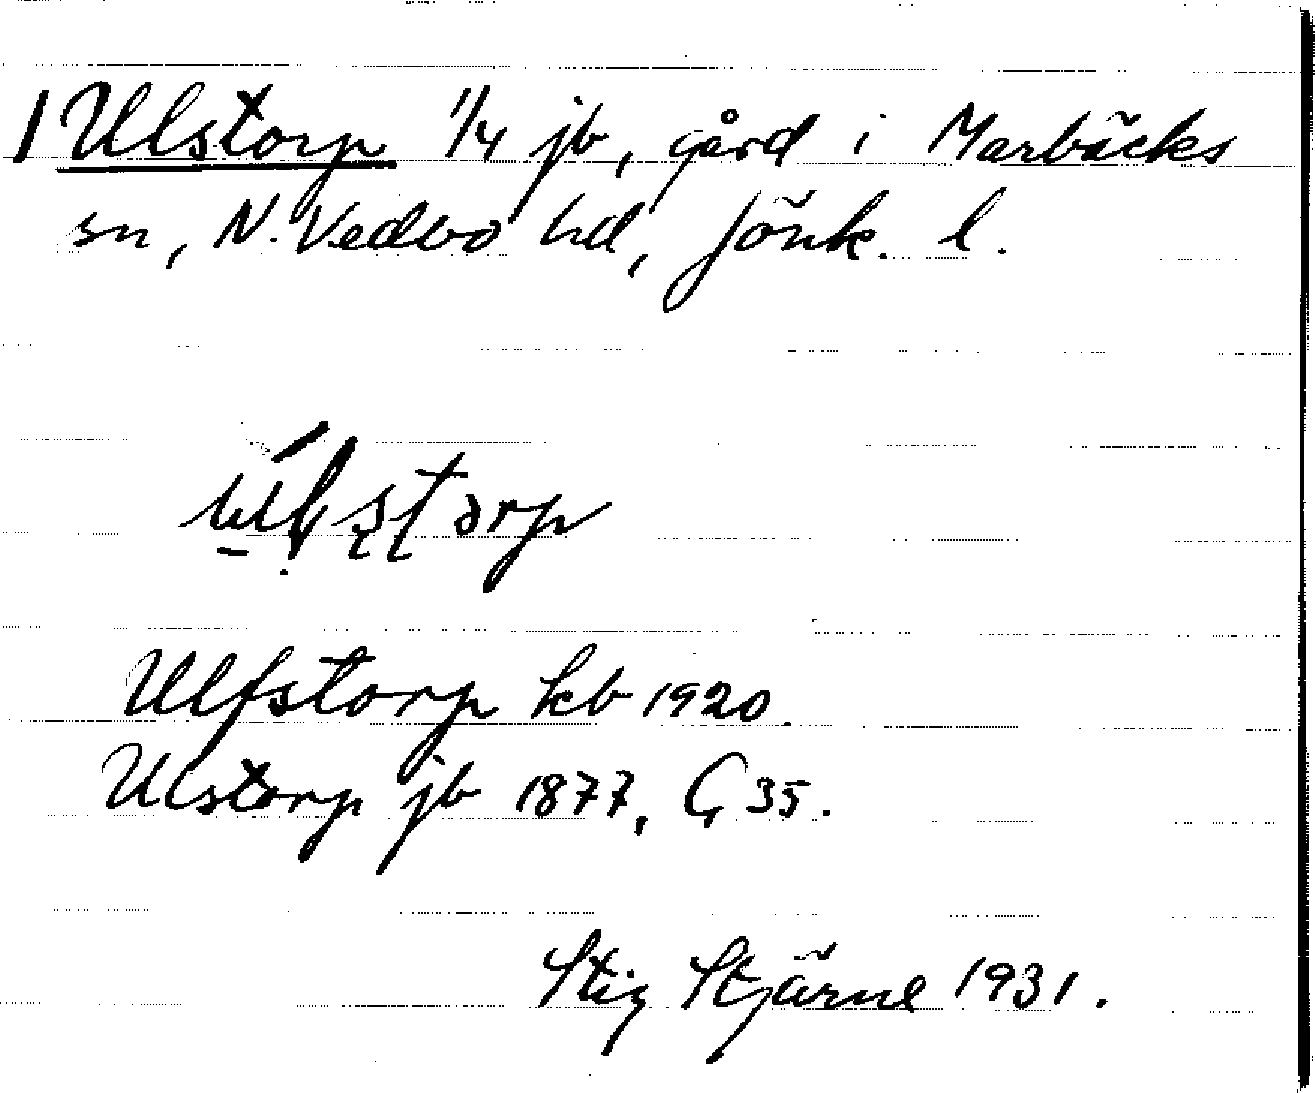 1 Ulstorp 1/4 jb, gård i Marbäcks
sn, N. Vedbo hd, Jönk. l.
Ulfstorp kb 1920.
Ulstorp jb 1877, G 35.
Stig Stjärne 1931.